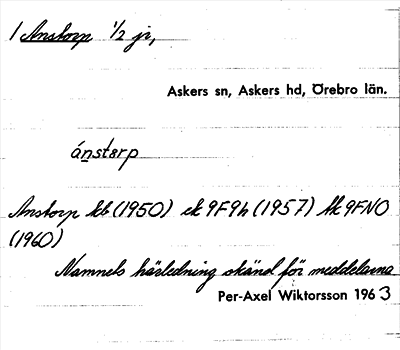 1 Anstorp 1/2 jr,
Askers sn, Askers hd, Örebro län.
ánstɐrp
Anstorp kb (1950) ek 9F9h (1957) tk 9FNO
(1960)
Namnets härledning okänd för meddelarna
Per-Axel Wiktorsson 1963